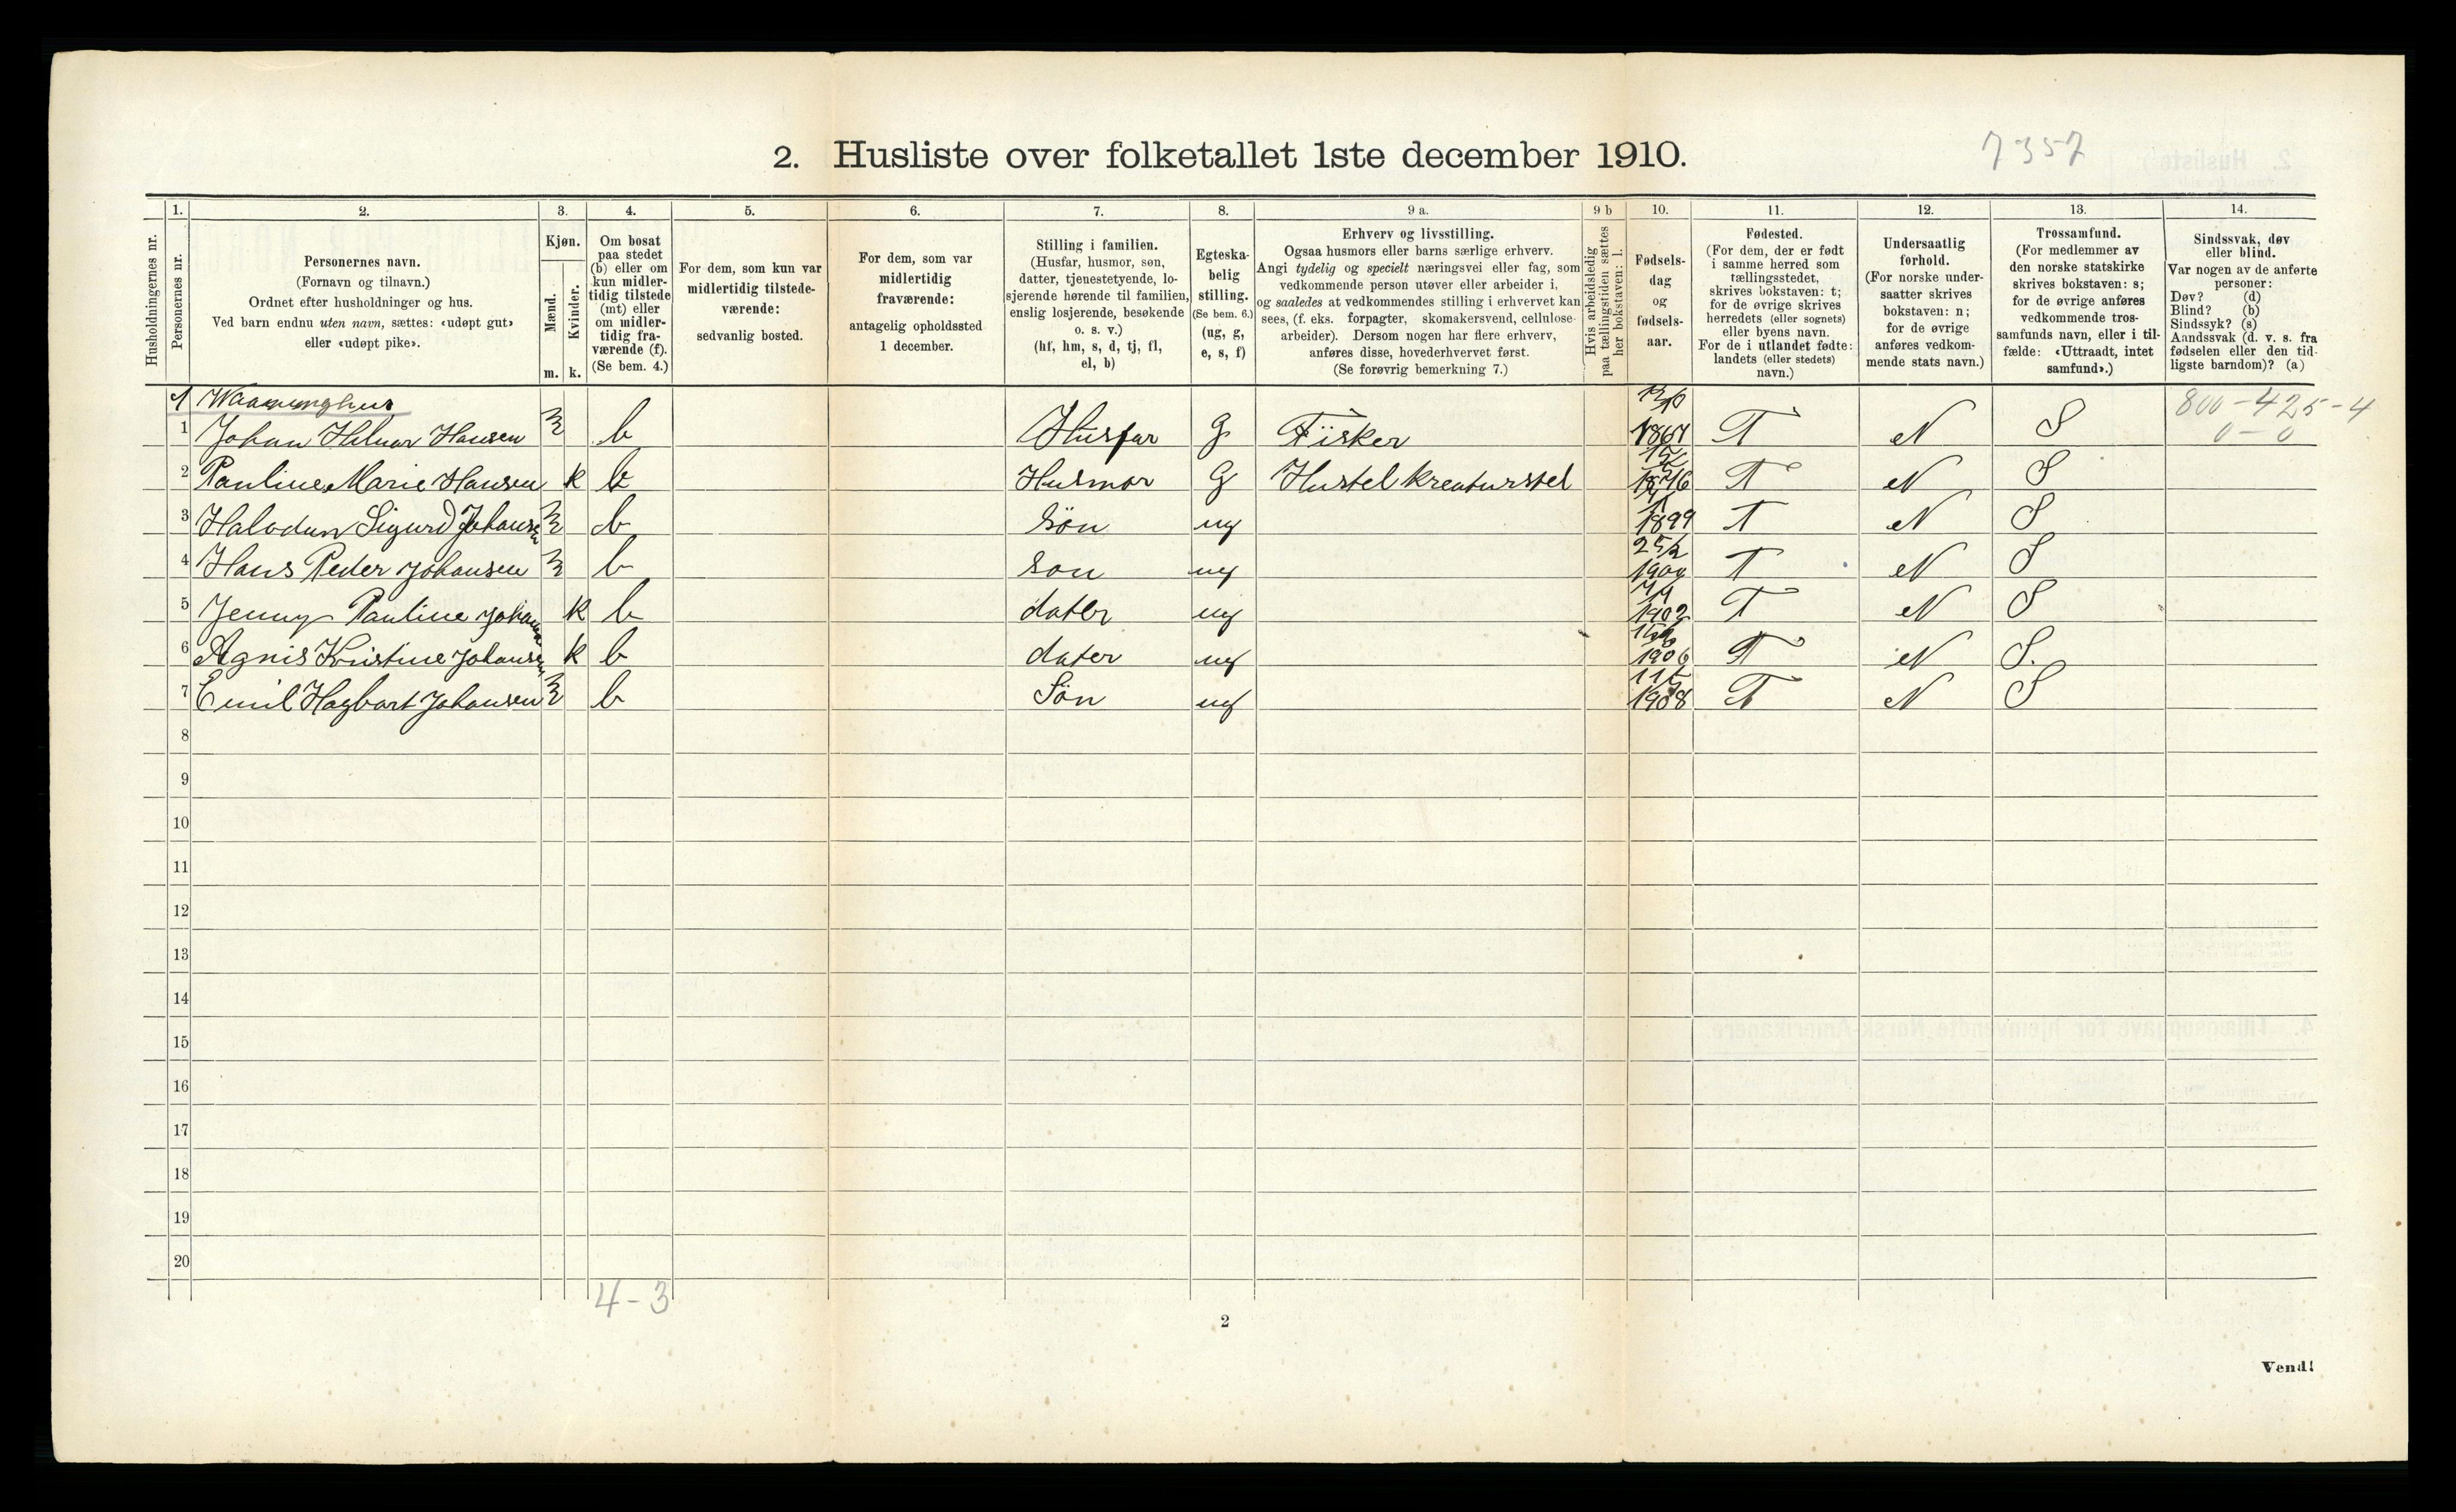 2. Husliste over folketallet 1ste december 1910.
7357
Husholdningernes nr.
1.
Personernes nr.
2.
Personernes navn.
(Fornavn og tilnavn.)
Ordnet efter husholdninger og hus.
Ved barn endnu uten navn, sættes: «udøpt gut»
eller «udøpt pike».
3.
Kjøn.
Mænd.
Kvinder.
m. k.
4.
Om bosat
paa stedet
(b) eller om
kun midler-
tidig tilstede
(mt) eller
om midler-
tidig fra-
værende (f).
(Se bem. 4.)
5.
For dem, som kun var
midlertidig tilstede-
værende:
sedvanlig bosted.
6.
For dem, som var
midlertidig
fraværende:
antagelig opholdssted
1 december.
7.
Stilling i familien.
(Husfar, husmor, søn,
datter, tjenestetyende, lo-
sjerende hørende til familien,
enslig losjerende, besøkende
o. s. v.)
(hf, hm, s, d, tj, fl,
el, b)
8.
Egteska-
belig
stilling.
(Se bem. 6.)
(ug, g,
e, s, f)
9 a.
Erhverv og livsstilling.
Ogsaa husmors eller barns særlige erhverv.
Angi tydelig og specielt næringsvei eller fag, som
vedkommende person utøver eller arbeider i,
og saaledes at vedkommendes stilling i erhvervet kan
sees, (f. eks. forpagter, skomakersvend, cellulose-
arbeider). Dersom nogen har flere erhverv,
anføres disse, hovederhvervet først.
(Se forøvrig bemerkning 7.)
9 b
Hvis arbeidsledig
paa tællingstiden sættes
her bokstaven: l.
10.
Fødsels-
dag
og
fødsels-
aar.
11.
Fødested.
(For dem, der er født
i samme herred som
tællingsstedet,
skrives bokstaven: t;
for de øvrige skrives
herredets (eller sognets)
eller byens navn.
For de i utlandet fødte:
landets (eller stedets)
navn.)
12.
Undersaatlig
forhold.
(For norske under-
saatter skrives
bokstaven: n;
for de øvrige
anføres vedkom-
mende stats navn.)
13.
Trossamfund.
(For medlemmer av
den norske statskirke
skrives bokstaven: s;
for de øvrige anføres
vedkommende tros-
samfunds navn, eller i til-
fælde: «Uttraadt, intet
samfund».)
14.
Sindssvak, døv
eller blind.
Var nogen av de anførte
personer:
Døv? (d)
Blind? (b)
Sindssyk? (s)
Aandssvak (d. v. s. fra
fødselen eller den tid-
ligste barndom)? (a)
1 Waaningshus
800-425-4
0-0
1 Johan Hilmar Hansen m b Husfar G Fisker T N S
2 Pauline Marie Hansen k b Husmor G Hustel kreaturstel 1876 T N S
3 Halvdan Sigurd Johansen m b Søn ug 1899 T N S
4 Hans Peder Johansen m b son ug T N S
5 Jenny Pauline Johansen k b dater ug 1902 T N S
6 Agnis Kristine Johansen k b dater ug 1906 T N S.
7 Emil Hagbart Johansen m b Søn ug 1908 T N S
8
9
10
11
12
13
14
15
16
17
18
19
20
4-3
2
Vend!